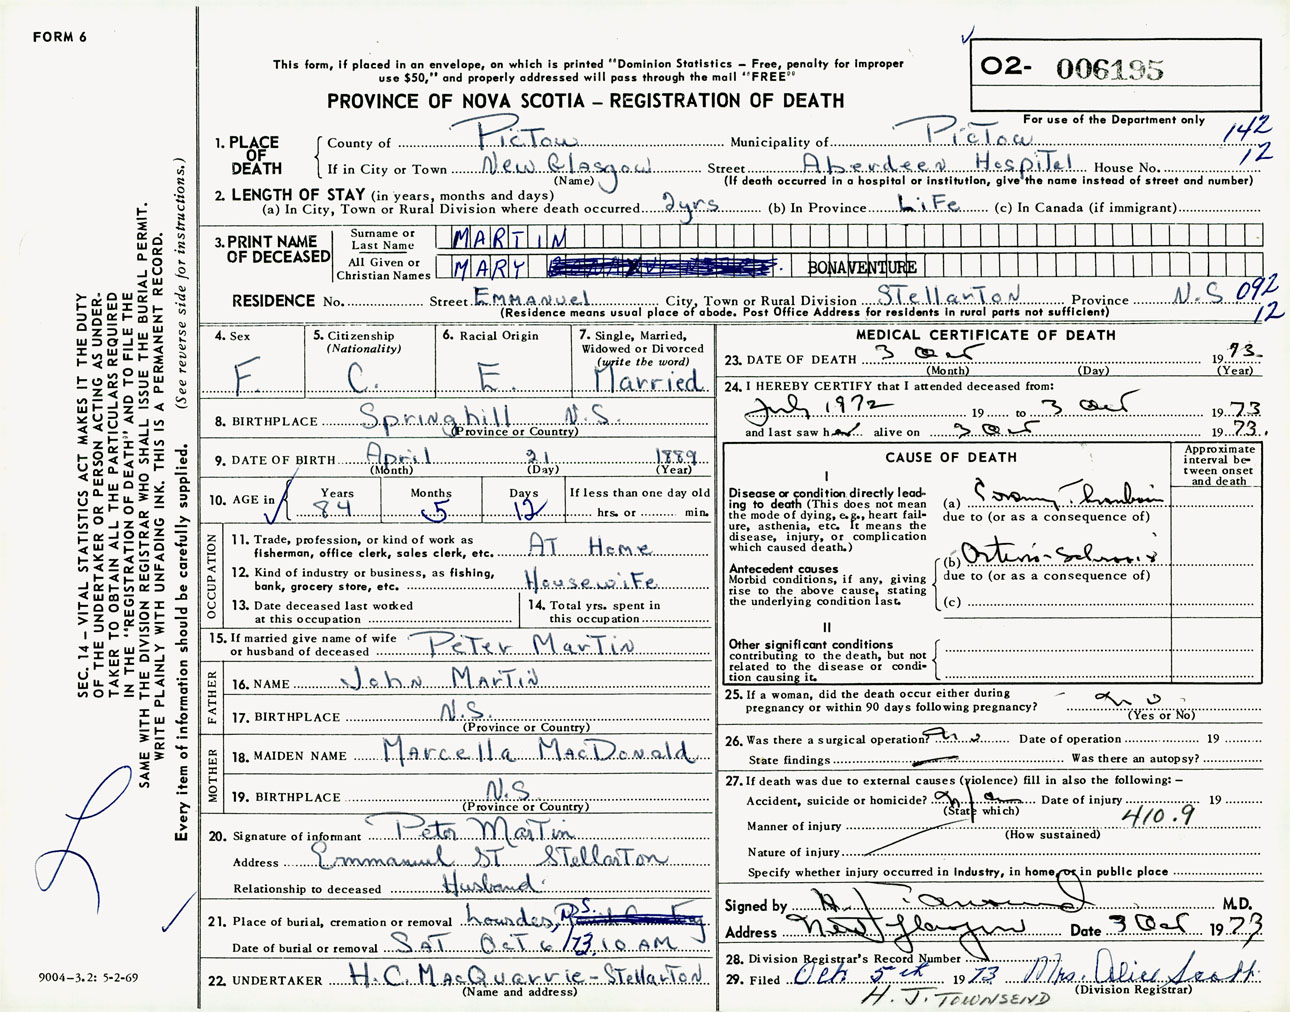 FORM 6
This form, if placed in an envelope, on which is printed "Dominion Statistics – Free, penalty for improper
use $50," and properly addressed will pass through the mail "FREE"
O2- 006195
PROVINCE OF NOVA SCOTIA – REGISTRATION OF DEATH
For use of the Department only
1. PLACE OF DEATH
County of Pictou Municipality of Pictou 142
If in City or Town New Glasgow Street Aberdeen Hospital House No. 12
(Name) (If death occurred in a hospital or institution, give the name instead of street and number)
2. LENGTH OF STAY (in years, months and days)
(a) In City, Town or Rural Division where death occurred 2yrs (b) In Province LiFe (c) In Canada (if immigrant)
3. PRINT NAME OF DECEASED
Surname or Last Name MARTIN
All Given or Christian Names MARY BONAVENTURE
RESIDENCE No. Street Emmanuel City, Town or Rural Division Stellarton Province N.S 092
(Residence means usual place of abode. Post Office Address for residents in rural parts not sufficient) 12
4. Sex
F.
5. Citizenship
(Nationality)
C.
6. Racial Origin
E.
7. Single, Married,
Widowed or Divorced
(write the word)
Married
8. BIRTHPLACE Springhill N.S.
(Province or Country)
9. DATE OF BIRTH April 21 1889
(Month) (Day) (Year)
10. AGE in Years Months Days If less than one day old
84 5 12 hrs. or min.
OCCUPATION
11. Trade, profession, or kind of work as
fisherman, office clerk, sales clerk, etc. AT Home
12. Kind of industry or business, as fishing,
bank, grocery store, etc. HousewiFe
13. Date deceased last worked
at this occupation
14. Total yrs. spent in
this occupation
15. If married give name of wife
or husband of deceased Peter Martin
FATHER
16. NAME John Martin
17. BIRTHPLACE N.S.
(Province or Country)
MOTHER
18. MAIDEN NAME Marcella MacDonald
19. BIRTHPLACE N.S.
(Province or Country)
20. Signature of informant Peter Martin
Address Emmanuel ST Stellarton
Relationship to deceased Husband
21. Place of burial, cremation or removal Lourdes, N.S.
Date of burial or removal SAT Oct 6/73, 10 AM
22. UNDERTAKER H.C. MacQuarrie - Stellarton
(Name and address)
MEDICAL CERTIFICATE OF DEATH
23. DATE OF DEATH 3 Oct 1973
(Month) (Day) (Year)
24. I HEREBY CERTIFY that I attended deceased from:
July 1972 19 to 3 Oct 1973
and last saw her alive on 3 Oct 1973.
CAUSE OF DEATH
Approximate
interval be-
tween onset
and death
I
Disease or condition directly lead-
ing to death (This does not mean
the mode of dying, e.g., heart fail-
ure, asthenia, etc. It means the
disease, injury, or complication
which caused death.)
(a) Coronary Thrombosis
due to (or as a consequence of)
Antecedent causes
Morbid conditions, if any, giving
rise to the above cause, stating
the underlying condition last.
(b) Arterio-Sclerosis
due to (or as a consequence of)
(c)
II
Other significant conditions
contributing to the death, but not
related to the disease or condi-
tion causing it.
25. If a woman, did the death occur either during
pregnancy or within 90 days following pregnancy? no
(Yes or No)
26. Was there a surgical operation? no Date of operation 19
State findings Was there an autopsy?
27. If death was due to external causes (violence) fill in also the following: –
Accident, suicide or homicide? Date of injury 19
(State which) 410.9
Manner of injury
(How sustained)
Nature of injury
Specify whether injury occurred in Industry, in home, or in public place
Signed by H. J. Townsend M.D.
Address New Glasgow Date 3 Oct 1973
28. Division Registrar's Record Number
29. Filed Oct 5th 1973 Mrs. Alice Scott
(Division Registrar)
H. J. TOWNSEND
SEC. 14 – VITAL STATISTICS ACT MAKES IT THE DUTY
OF THE UNDERTAKER OR PERSON ACTING AS UNDER-
TAKER TO OBTAIN ALL THE PARTICULARS REQUIRED
IN THE "REGISTRATION OF DEATH" AND TO FILE THE
SAME WITH THE DIVISION REGISTRAR WHO SHALL ISSUE THE BURIAL PERMIT.
WRITE PLAINLY WITH UNFADING INK. THIS IS A PERMANENT RECORD.
Every item of information should be carefully supplied. (See reverse side for instructions.)
9004-3.2: 5-2-69